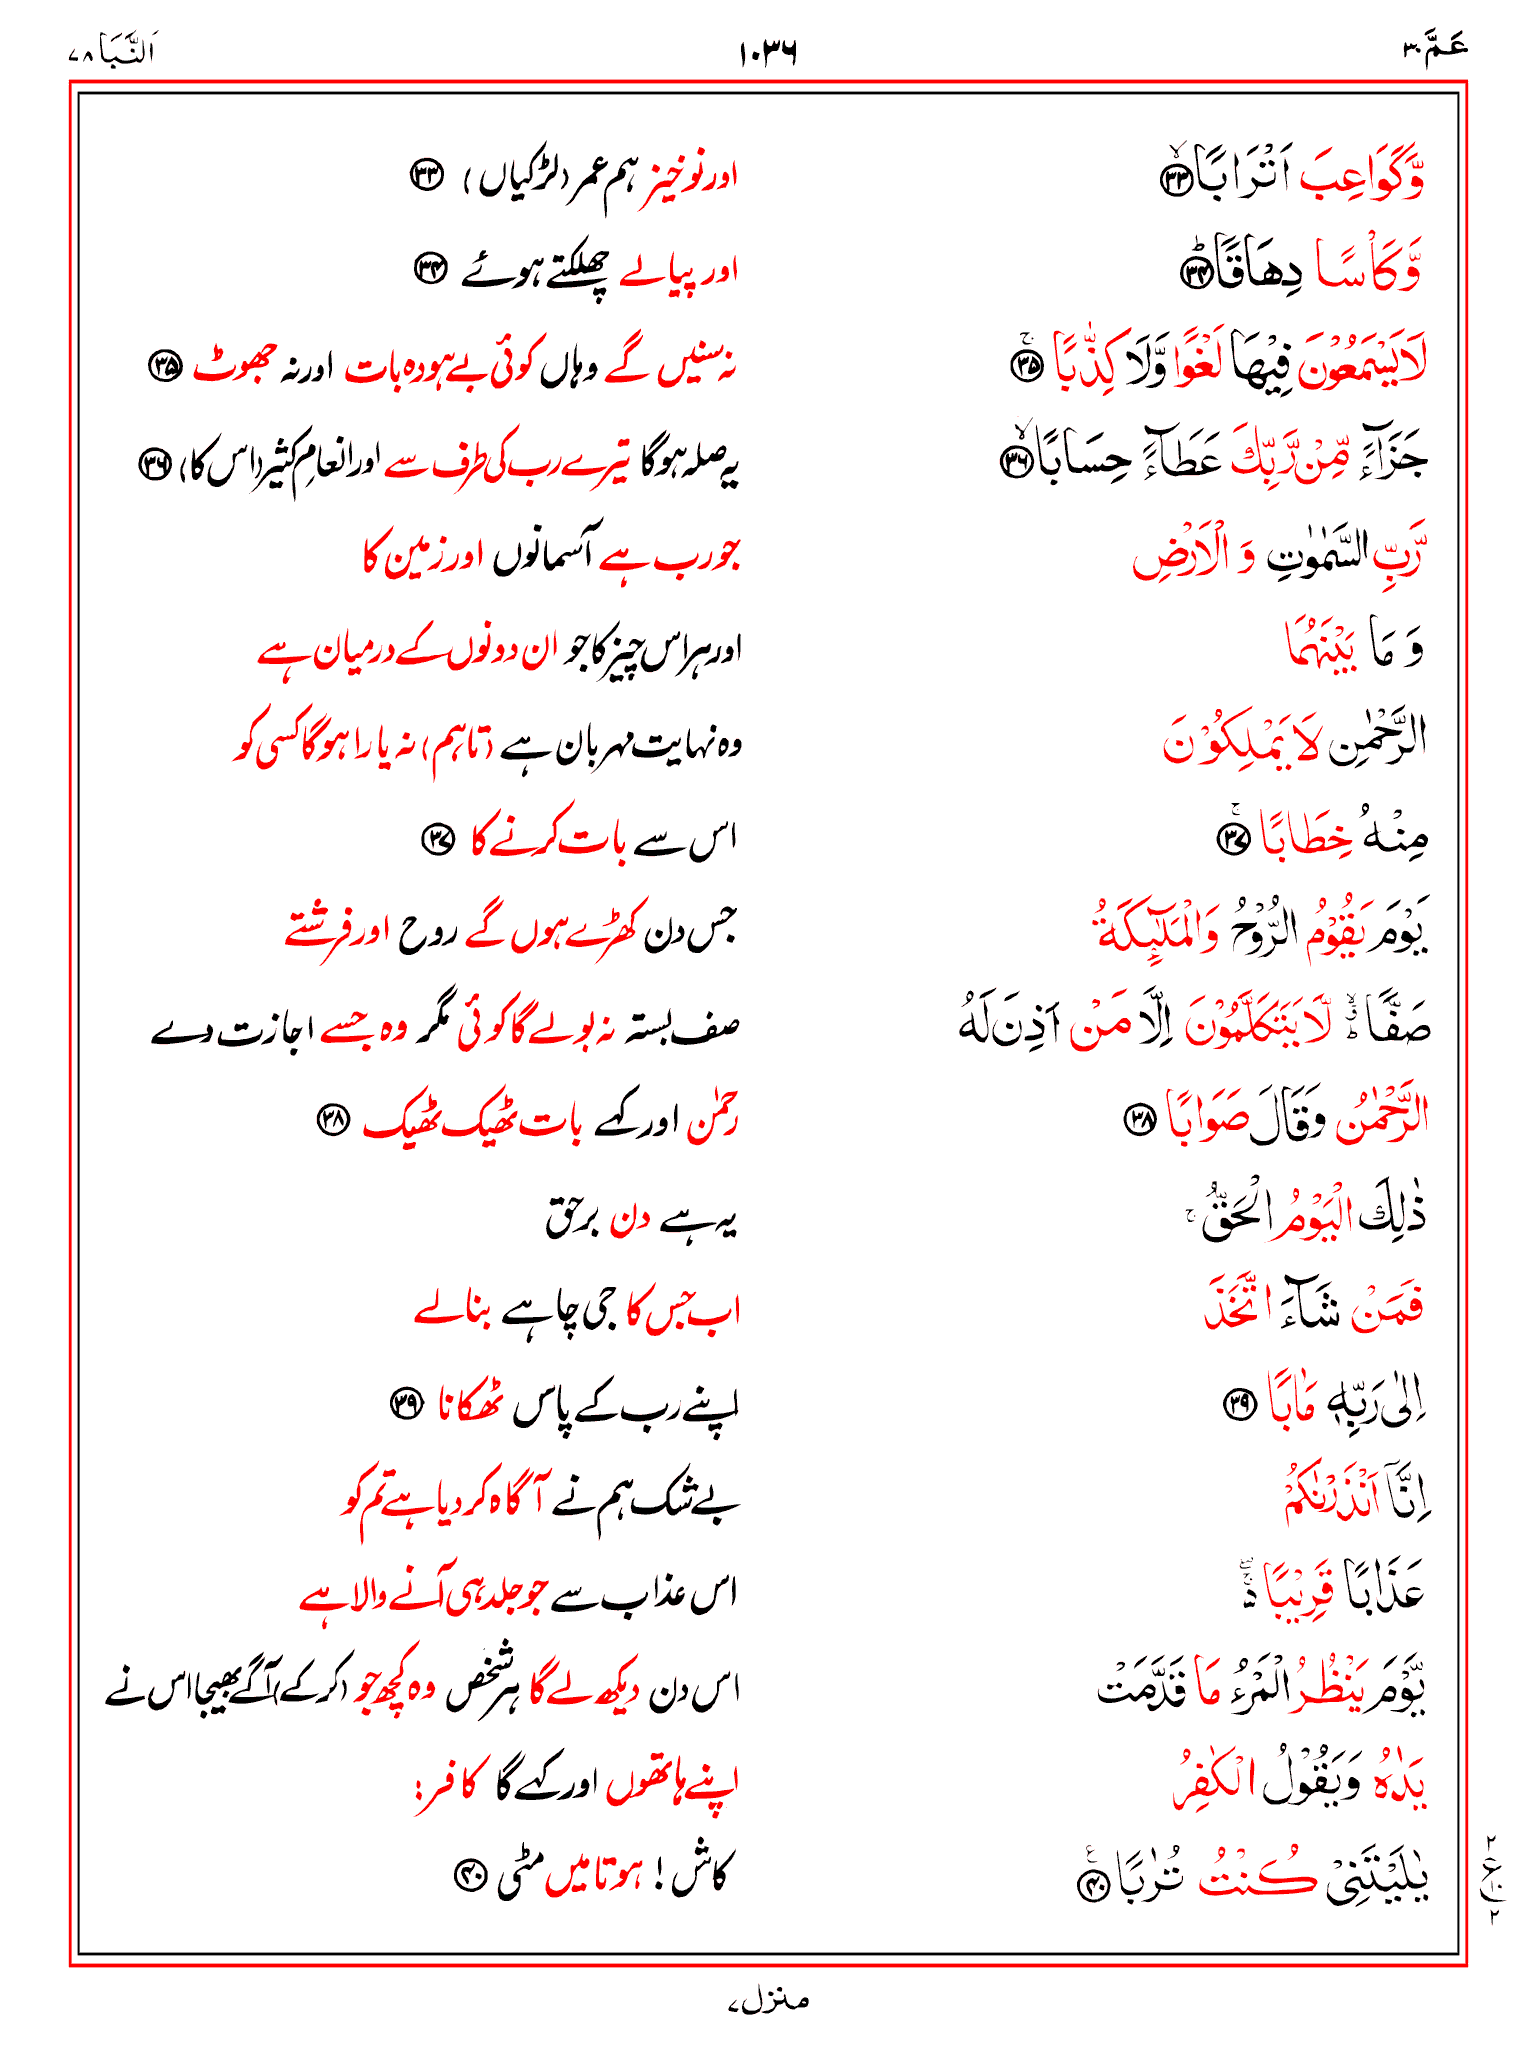 عَمَّ ۳۰ ۱۰۳۶ اَلنَّبَا ۷۸
وَّكَوَاعِبَ اَتْرَابًا ۙ﴿۳۳﴾ اور نوخیز ہم عمر (لڑکیاں) ﴿۳۳﴾
وَّكَاْسًا دِهَاقًا ؕ﴿۳۴﴾ اور پیالے چھلکتے ہوئے ﴿۳۴﴾
لَا يَسْمَعُوْنَ فِيْهَا لَغْوًا وَّلَا كِذّٰبًا ۚ﴿۳۵﴾ نہ سنیں گے وہاں کوئی بے ہودہ بات اور نہ جھوٹ ﴿۳۵﴾
جَزَآءً مِّنْ رَّبِّكَ عَطَآءً حِسَابًا ۙ﴿۳۶﴾ یہ صلہ ہوگا تیرے رب کی طرف سے اور انعامِ کثیر (اس کا) ﴿۳۶﴾
رَّبِّ السَّمٰوٰتِ وَ الْاَرْضِ جو رب ہے آسمانوں اور زمین کا
وَ مَا بَيْنَهُمَا اور ہر اس چیز کا جو ان دونوں کے درمیان ہے
الرَّحْمٰنِ لَا يَمْلِكُوْنَ وہ نہایت مہربان ہے (تاہم) نہ یارا ہوگا کسی کو
مِنْهُ خِطَابًا ۚ﴿۳۷﴾ اس سے بات کرنے کا ﴿۳۷﴾
يَوْمَ يَقُوْمُ الرُّوْحُ وَالْمَلٰٓئِكَةُ جس دن کھڑے ہوں گے روح اور فرشتے
صَفًّا ۙؗ لَّا يَتَكَلَّمُوْنَ اِلَّا مَنْ اَذِنَ لَهُ صف بستہ نہ بولے گا کوئی مگر وہ جسے اجازت دے
الرَّحْمٰنُ وَقَالَ صَوَابًا ﴿۳۸﴾ رحمٰن اور کہے بات ٹھیک ٹھیک ﴿۳۸﴾
ذٰلِكَ الْيَوْمُ الْحَقُّ ۚ یہ ہے دن برحق
فَمَنْ شَآءَ اتَّخَذَ اب جس کا جی چاہے بنالے
اِلٰى رَبِّهٖ مَاٰبًا ﴿۳۹﴾ اپنے رب کے پاس ٹھکانا ﴿۳۹﴾
اِنَّاۤ اَنْذَرْنٰكُمْ بے شک ہم نے آگاہ کر دیا ہے تم کو
عَذَابًا قَرِيْبًا ۖۚ۬ اس عذاب سے جو جلد ہی آنے والا ہے
يَّوْمَ يَنْظُرُ الْمَرْءُ مَا قَدَّمَتْ اس دن دیکھ لے گا ہر شخص وہ کچھ جو (کرکے) آگے بھیجا اس نے
يَدٰهُ وَيَقُوْلُ الْكٰفِرُ اپنے ہاتھوں اور کہے گا کافر:
يٰلَيْتَنِىْ كُنْتُ تُرٰبًا ۠﴿۴۰﴾ کاش! ہوتا میں مٹی ﴿۴۰﴾
۲
ع
۱۰
۲
منزل ۷